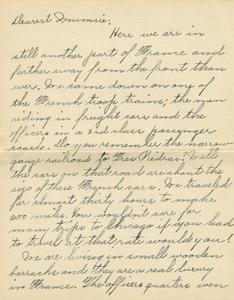 Dearest Dummie:
Here we are in
still another part of France and
farther away from the front than
ever. We came down on one of
the French troop trains; the men
riding in freight cars and the
officers in a 3rd class passenger
coach. Do you remember the narrow
gauge railroad to Tres Piedras? Well
the cars on that road are about the
size of these French cars. We traveled
for almost thirty hours to make
200 miles. You wouldn't care for
many trips to Chicago if you had
to travel at that rate would you?
We are living in small wooden
barracks and they are a real luxury
in France. The officers quarters even